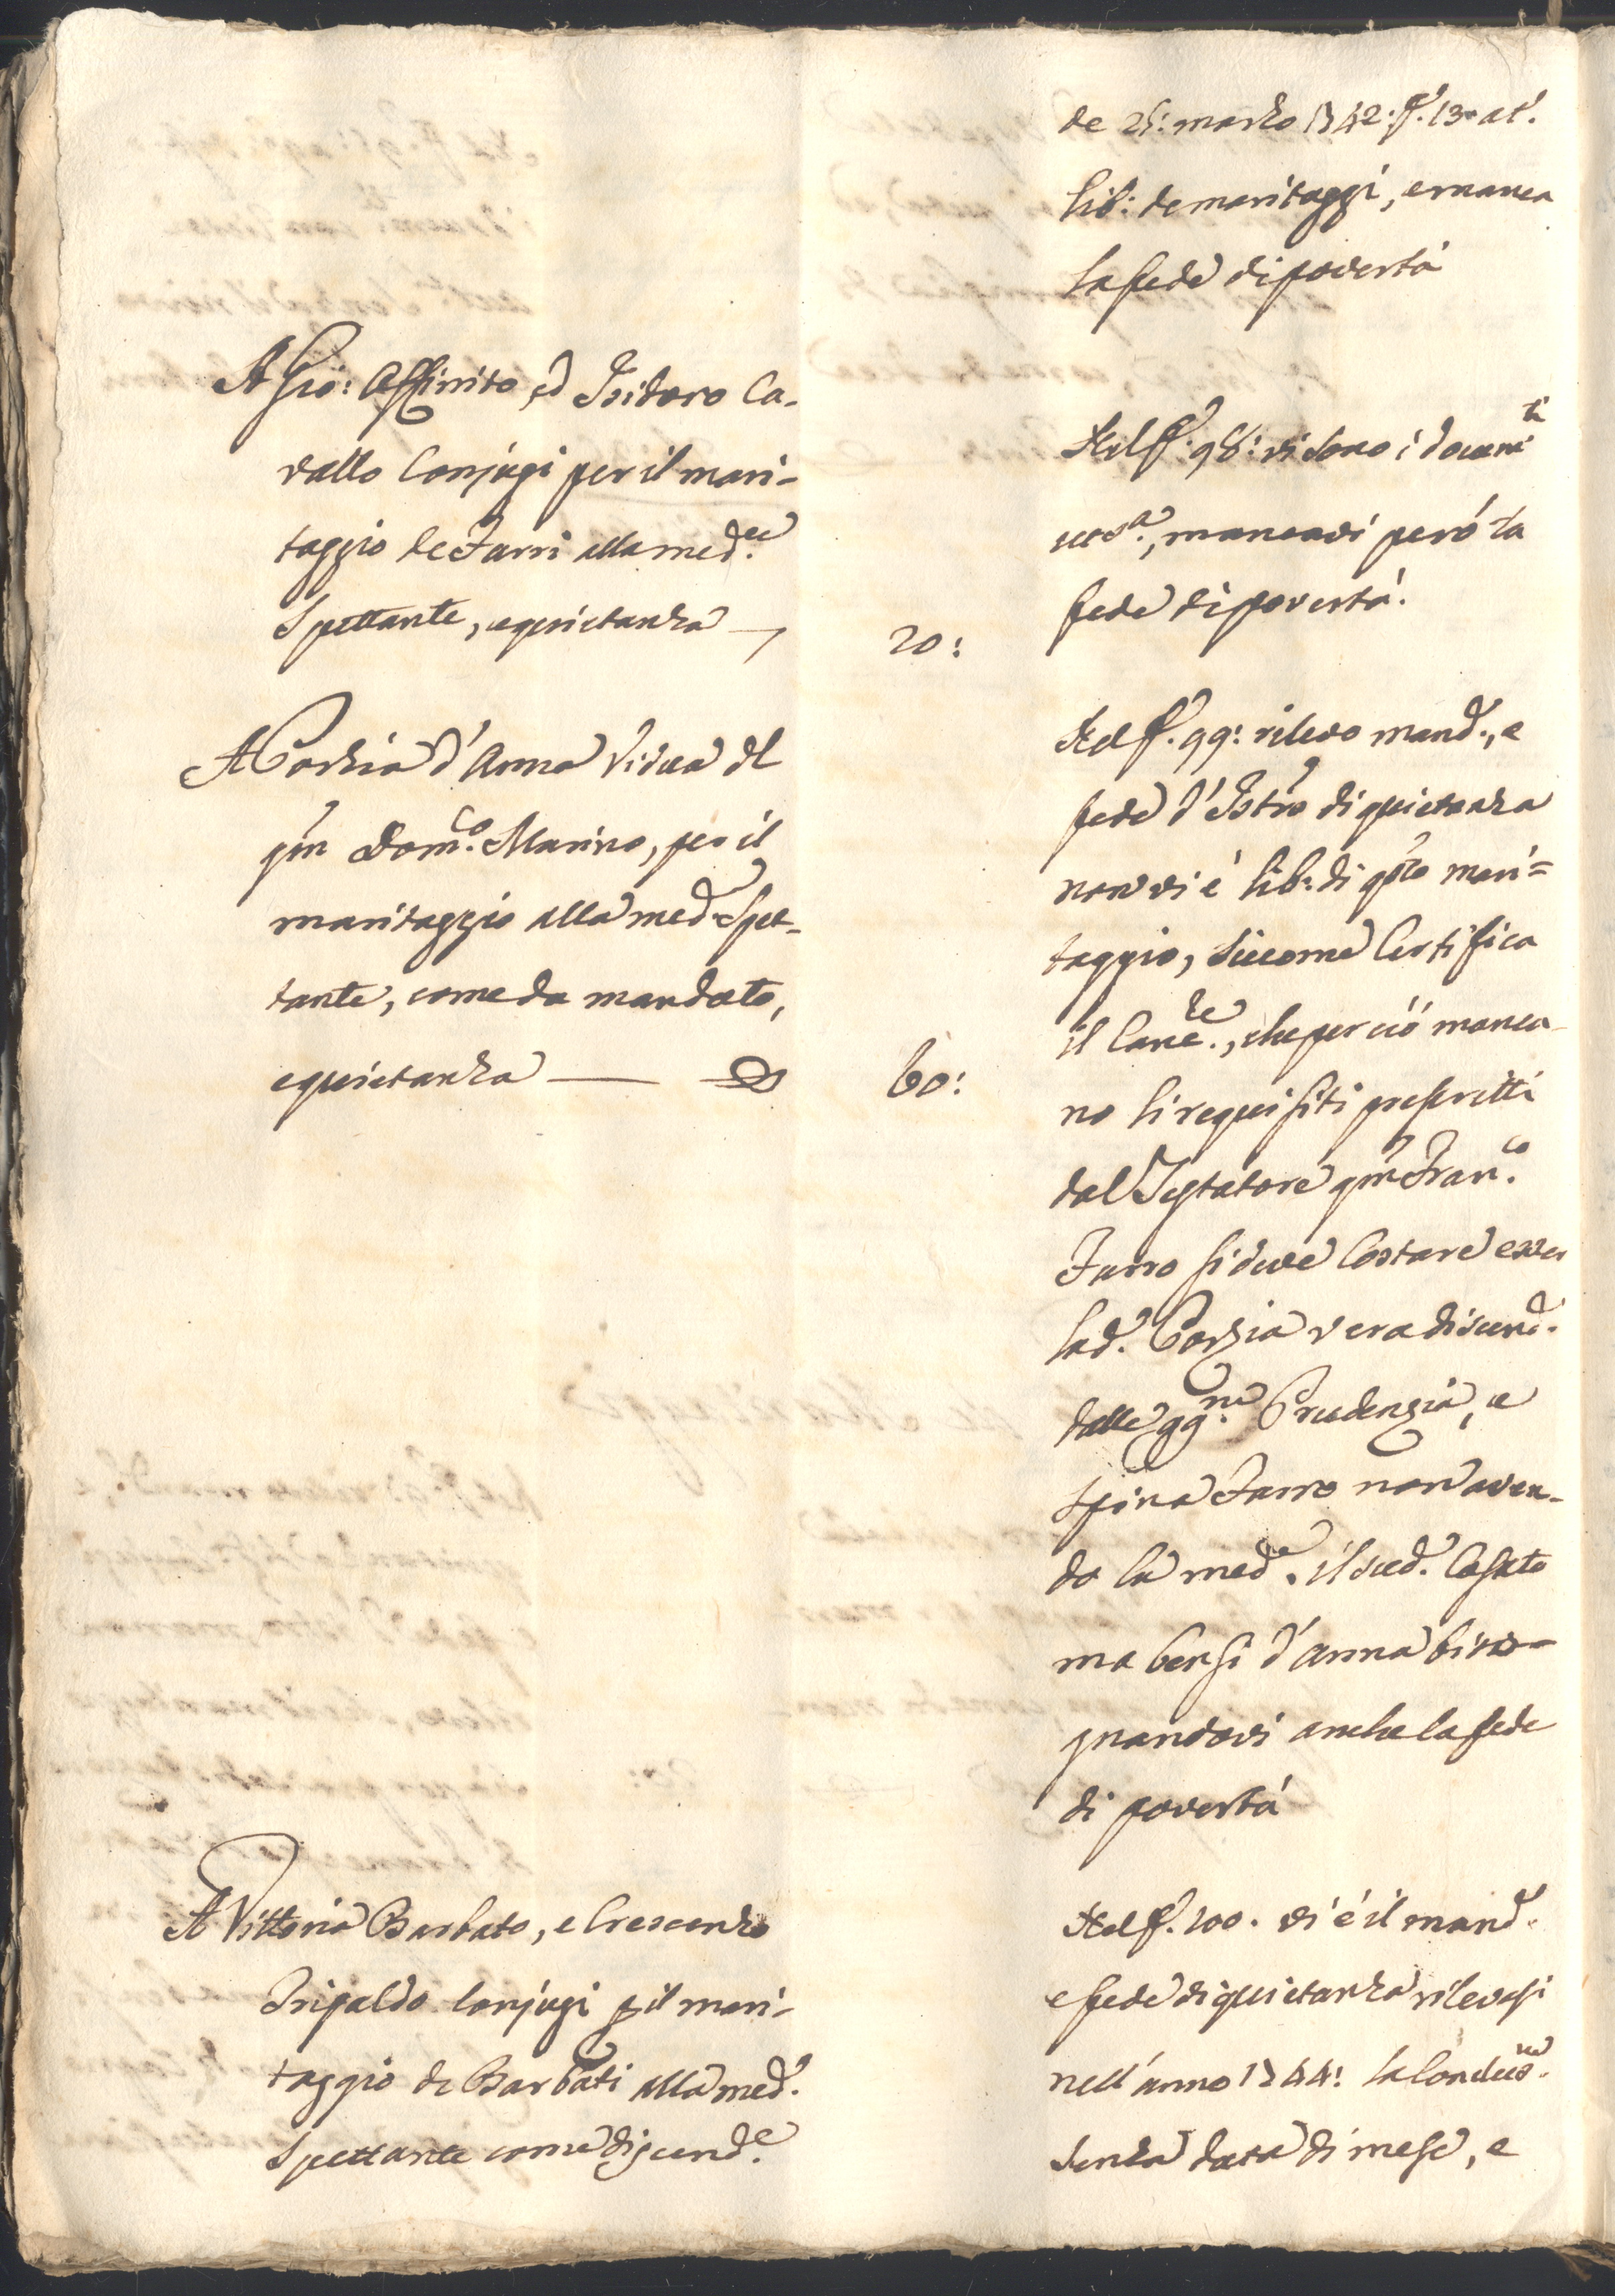 de 25: marzo 1742. f. 13. at.
lib: de maritaggi, e manca
la fede di povertà
A Gio: Affinito, ed Isidoro Ca-
vallo Conjugi per il mari-
taggio de Farri alla med.
Spettante, e quietanza
20:
Nel f. 98: vi sono i docum.ti
mancavi però la
fede di povertà.
A Porzia d'Anna Vidua del
qm Dom.co Marino, per il
maritaggio alla med. Spet-
tante, come da mandato,
e quietanza
60:
Nel f. 99: rilevo mand., e
fede d'Istro di quietanza
non vi è lib: di qsto mari=
taggio, siccome Certifica
il Canc.re, che perciò manca
no li requisiti prescritti
dal Testatore qm Fran.co
Farro si deve Costare esser
la d. Porzia vera discend.
dalle qq. Prudenzia, e
Spina Farro non aven-
do la med.ma il sud. Casato
ma bensi d'Anna biso-
gnandovi anche la fede
di povertà
A Vittoria Barbato, e Crescenzo
Tripaldo Conjugi p il mari-
taggio de Barbati alla med.
Spettante come discend.e
Nel f. 100. vi è il mand.
e fede di quietanza rilevasi
nell'anno 1744: la Conclus.ne
senza data di mese, e